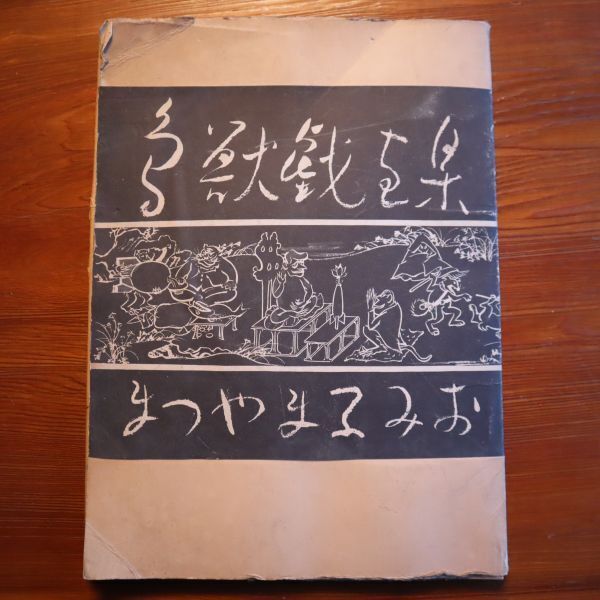 鳥獣戯画集
まつやまふみお